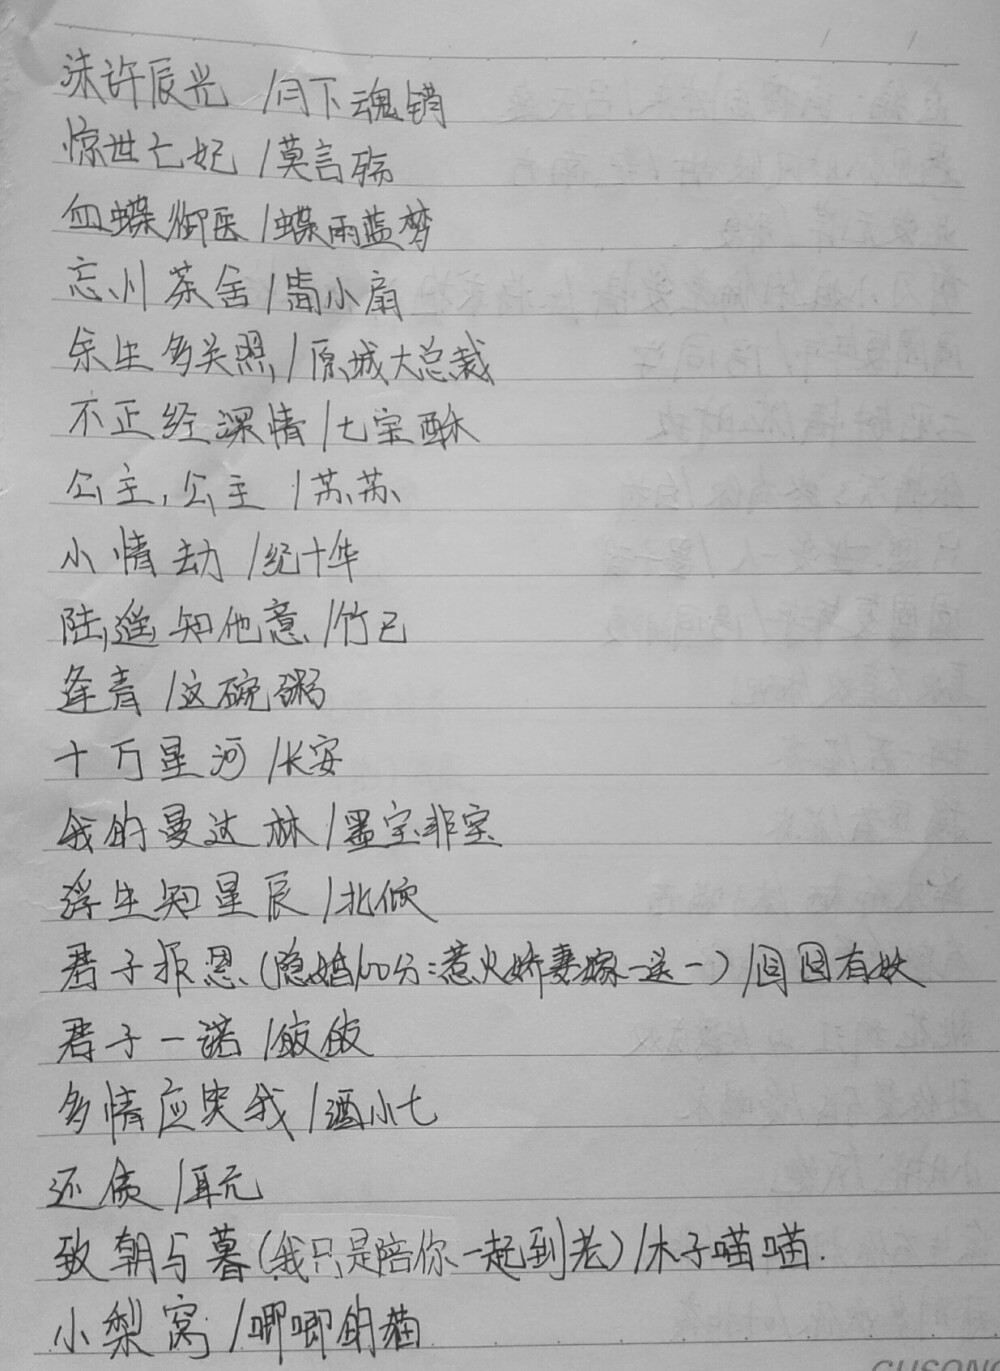 沫许辰光 /月下魂销
惊世亡妃 /莫言殇
血蝶御医 /蝶雨蓝梦
忘川茶舍 /雪小扇
余生多关照 /原城大总裁
不正经深情 /七宝酥
公主,公主 /苏苏
小情劫 /纪十年
陆遥知他意 /竹已
逢青 /这碗粥
十万星河 /长安
我的曼达林 /墨宝非宝
浮生知星辰 /北倾
君子报恩(隐婚100分:惹火娇妻嫁一送一) /囧囧有妖
君子一诺 /皎皎
多情应笑我 /酒小七
还债 /耳元
致朝与暮(我只是陪你一起到老) /木子喵喵.
小梨窝 /唧唧的猫
GUSONG